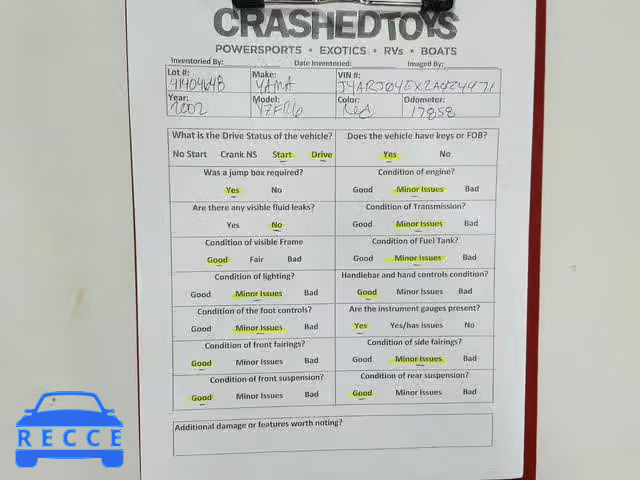 CRASHEDTOYS
POWERSPORTS • EXOTICS • RVs • BOATS
Inventoried By: Date Inventoried: Imaged By:
Lot #: Make: VIN #:
41404648 YAMA JYARJ04EX2A424471
Year: Model: Color: Odometer:
2002 YZFR6 Red 17858
What is the Drive Status of the vehicle? Does the vehicle have keys or FOB?
No Start Crank NS Start Drive Yes No
Was a jump box required? Condition of engine?
Yes No Good Minor Issues Bad
Are there any visible fluid leaks? Condition of Transmission?
Yes No Good Minor Issues Bad
Condition of visible Frame Condition of Fuel Tank?
Good Fair Bad Good Minor Issues Bad
Condition of lighting? Handlebar and hand controls condition?
Good Minor Issues Bad Good Minor Issues Bad
Condition of the foot controls? Are the instrument gauges present?
Good Minor Issues Bad Yes Yes/has issues No
Condition of front fairings? Condition of side fairings?
Good Minor Issues Bad Good Minor Issues Bad
Condition of front suspension? Condition of rear suspension?
Good Minor Issues Bad Good Minor Issues Bad
Additional damage or features worth noting?
RECCE